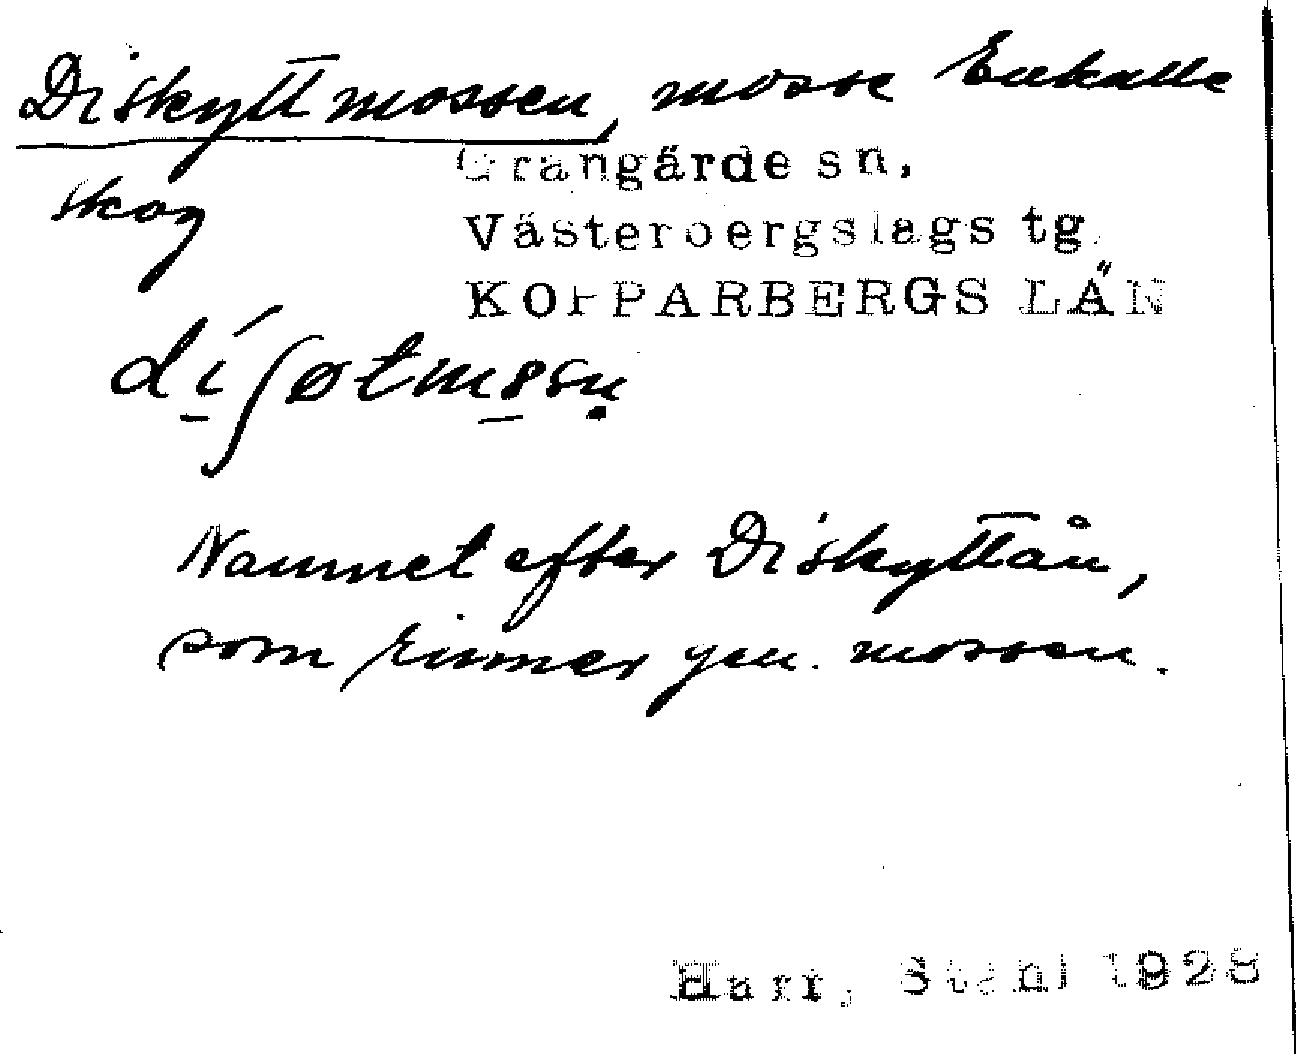 Diskyttmossen, mosse Enkulle
Grangärde sn.
skog
Västerbergslags tg.
KOPPARBERGS LÄN
díʃøtmɞsn̥
Namnet efter Diskyttån,
som rinner gen. mossen.
Harr. Ståhl 1928